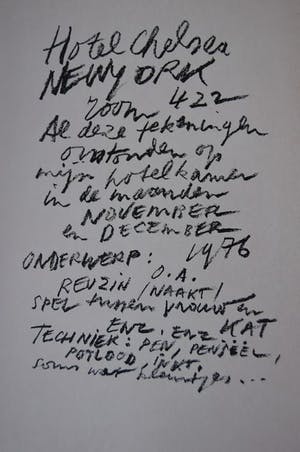 Hotel Chelsea
NEW YORK
room 422
Al deze tekeningen
ontstonden op
mijn hotelkamer
in de maanden
NOVEMBER
en DECEMBER
1976
ONDERWERP: O.A.
REUZIN /NAAKT/
SPEL tussen vrouw en
KAT
ENZ. ENZ
TECHNIEK: PEN, PENSEEL,
POTLOOD, INKT.
soms wat kleurtjes...